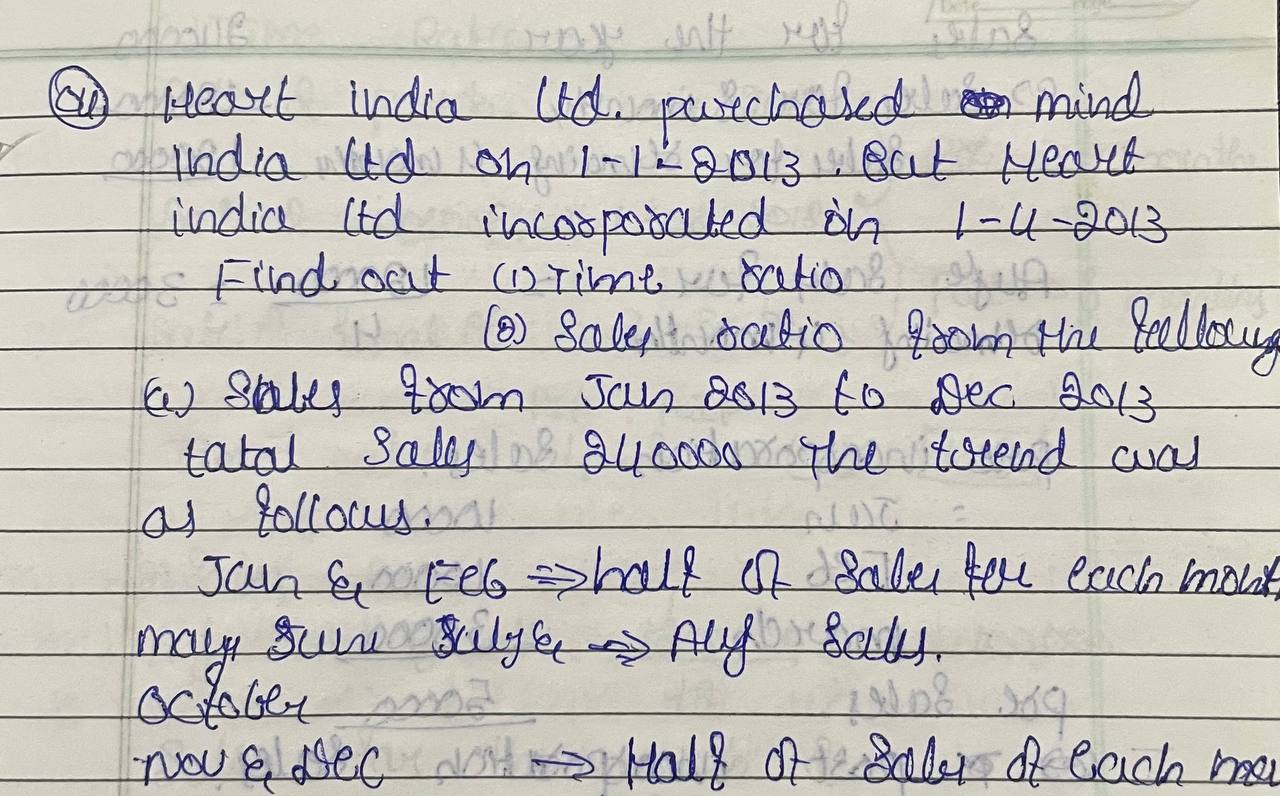 Q4 Heart india Ltd. purchased mind
india Ltd on 1-1-2013. But Heart
india Ltd incorporated on 1-4-2013
Find out (1) Time ratio
(2) Sales ratio from the following
(a) Sales from Jan 2013 to Dec 2013
total Sales 240000 The trend was
as follows.
Jan & Feb ⇒ half of Sales for each mont
may, June July & ⇒ Avg Sales.
october
Nov & Dec → Half of Sales of each